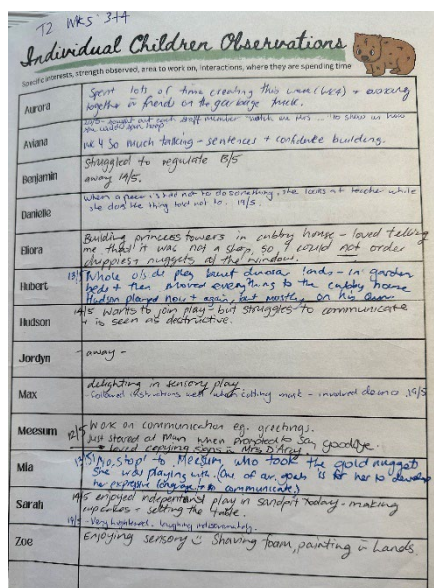 T2 WKS 3+4
Individual Children Observations
Specific interests, strength observed, area to work on, interactions, where they are spending time
Aurora
Spent lots of time creating this week (wk4) + working
together w friends on the garbage truck.
Aviana
sought out each staff member "watch me Mrs ..." to show us how
she could spin hoop
wk 4 So much talking - sentences + confidence building.
Benjamin
Struggled to regulate 13/5
away 14/5.
Danielle
when a peer is told not to do something, she looks at teacher while
she does the thing told not to. 14/5.
Eliora
Building princess towers in cubby house - loved telling
me that it was not a shop, so I could not order
chippies + nuggets at the window.
Hubert
13/5 Whole o/side play built dinosaur lands - in garden
beds + then moved everything to the cubby house
Hudson played now + again, but mostly on his own
Hudson
14/5 wants to join play - but struggles to communicate
+ is seen as destructive.
Jordyn
- away -
Max
delighting in sensory play
- followed instructions well when cutting mask - involved dino 19/5
Meesum
12/5 Work on communication eg. greetings.
Just stared at Mum when prompted to say goodbye.
loved copying signs w Mrs D'Arcy
Mia
13/5 'No, stop' to Meesum who took the gold nugget
she was playing with. (One of our goals is for her to develop
her expressive language to communicate)
Sarah
14/5 enjoyed independent play in sandpit today - making
cupcakes + setting the table.
- Very heightened, laughing
Zoe
Enjoying sensory Shaving foam, painting w hands.